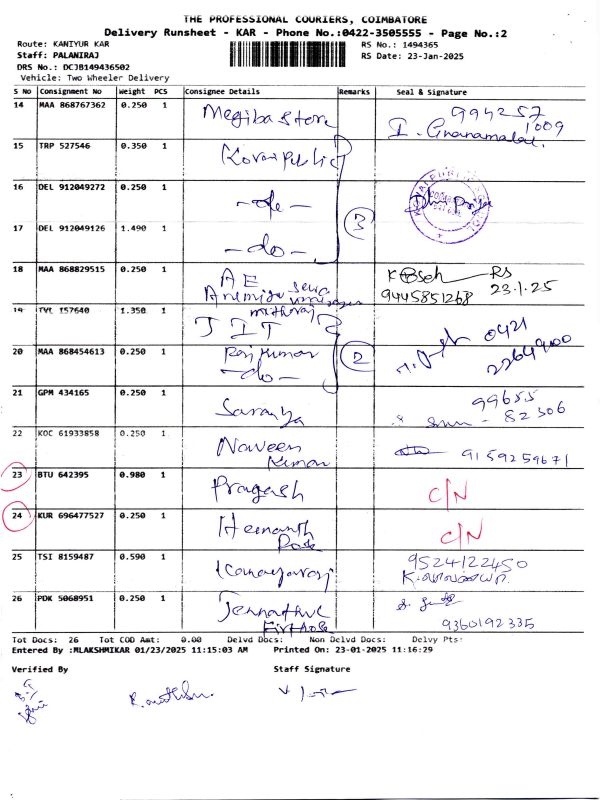 THE PROFESSIONAL COURIERS, COIMBATORE
Delivery Runsheet - KAR - Phone No.:0422-3505555 - Page No.:2
Route: KANIYUR KAR
RS No.: 1494365
Staff: PALANIRAJ
RS Date: 23-Jan-2025
DRS No.: DCJB149436502
Vehicle: Two Wheeler Delivery
S No Consignment No Weight PCS Consignee Details Remarks Seal & Signature
14 MAA 868767362 0.250 1 Megiba Store 994257
1009
15 TRP 527546 0.350 1 Kovai Public
16 DEL 912049272 0.250 1 -do-
3
17 DEL 912049126 1.490 1 -do-
18 MAA 868829515 0.250 1 A E RS
9445851268 23.1.25
19 TVL 157640 1.350 1 J I T 0421
20 MAA 868454613 0.250 1 Rajkumar 2264900
-do- 2
21 GPM 434165 0.250 1 Saranya 99655
- 82306
22 KOC 61933858 0.250 1 Naveen Kumar 9159259671
23 BTU 642395 0.980 1 Pragash C/N
24 KUR 696477527 0.250 1 Hemanth C/N
25 TSI 8159487 0.590 1 Kanagaraj 9524122450
26 PDK 5068951 0.250 1 Jennathul Firthose 9360192335
Tot Docs: 26 Tot COD Amt: 0.00 Delvd Docs: Non Delvd Docs: Delvy Pts:
Entered By :MLAKSHMIKAR 01/23/2025 11:15:03 AM Printed On: 23-01-2025 11:16:29
Verified By Staff Signature